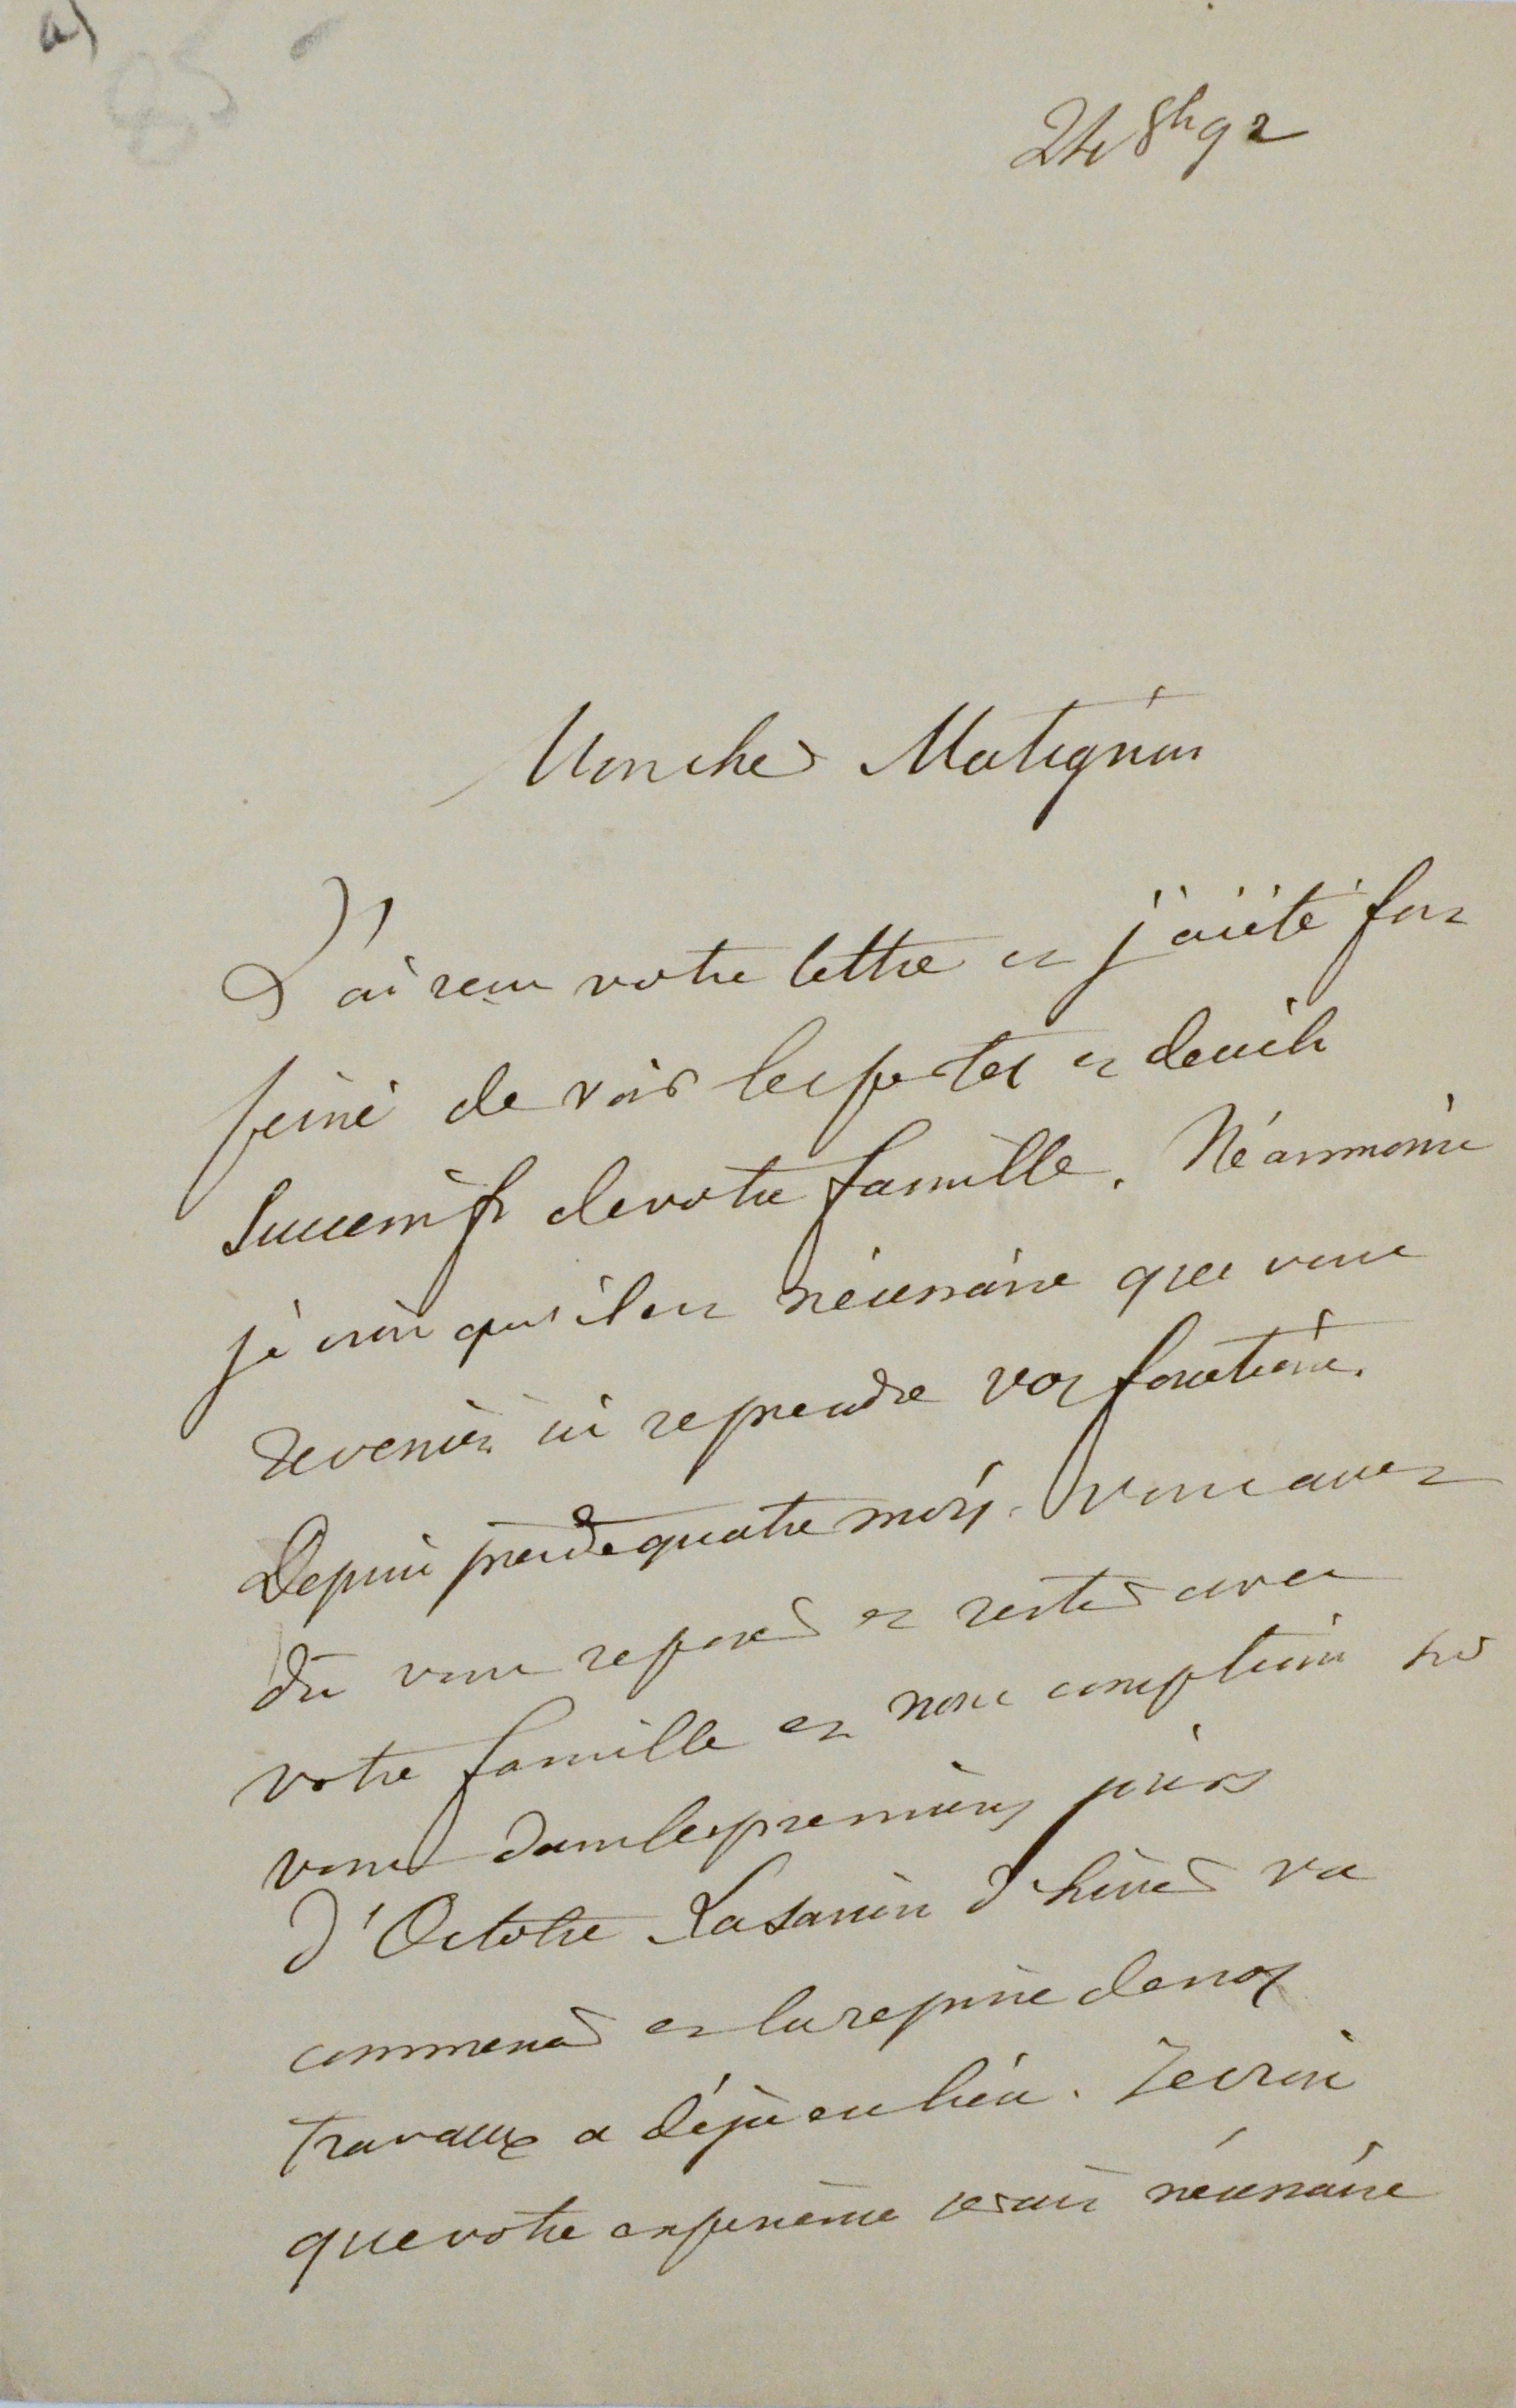 a)
85
24 8b 92
Mon cher Matignon
J'ai reçu votre lettre et j'ai été fort
peiné de voir les pertes et deuils
successifs de votre famille. Néanmoins
je crois qu'il est nécessaire que vous
reveniez ici reprendre vos fonctions.
Depuis près de quatre mois vous avez
dû vous reposer et rester avec
votre famille et nous comptions sur
vous dans les premiers jours
d'Octobre La saison d'hiver va
commencer et la reprise de nos
travaux a déjà eu lieu. Je crois
que votre expérience serait nécessaire